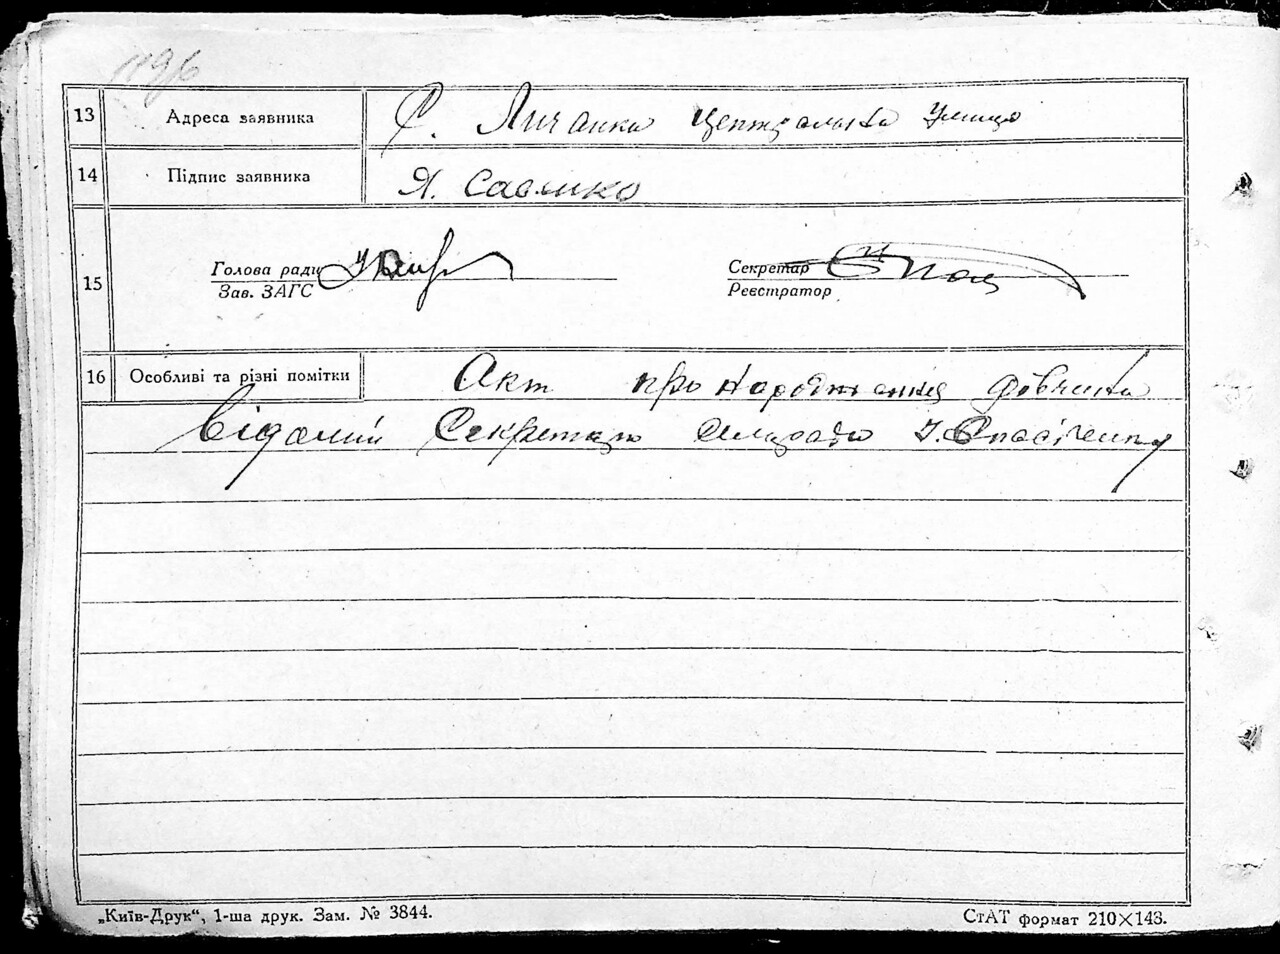 1196
13 Адреса заявника С. Личанка Центральна Улиця
14 Підпис заявника Я. Савлико
15 Голова ради Секретар
Зав. ЗАГС Реєстратор
16 Особливі та різні помітки Акт про народження дівчина
Відомий Секретарю
„Київ-Друк“, 1-ша друк. Зам. № 3844. СтАТ формат 210×143.